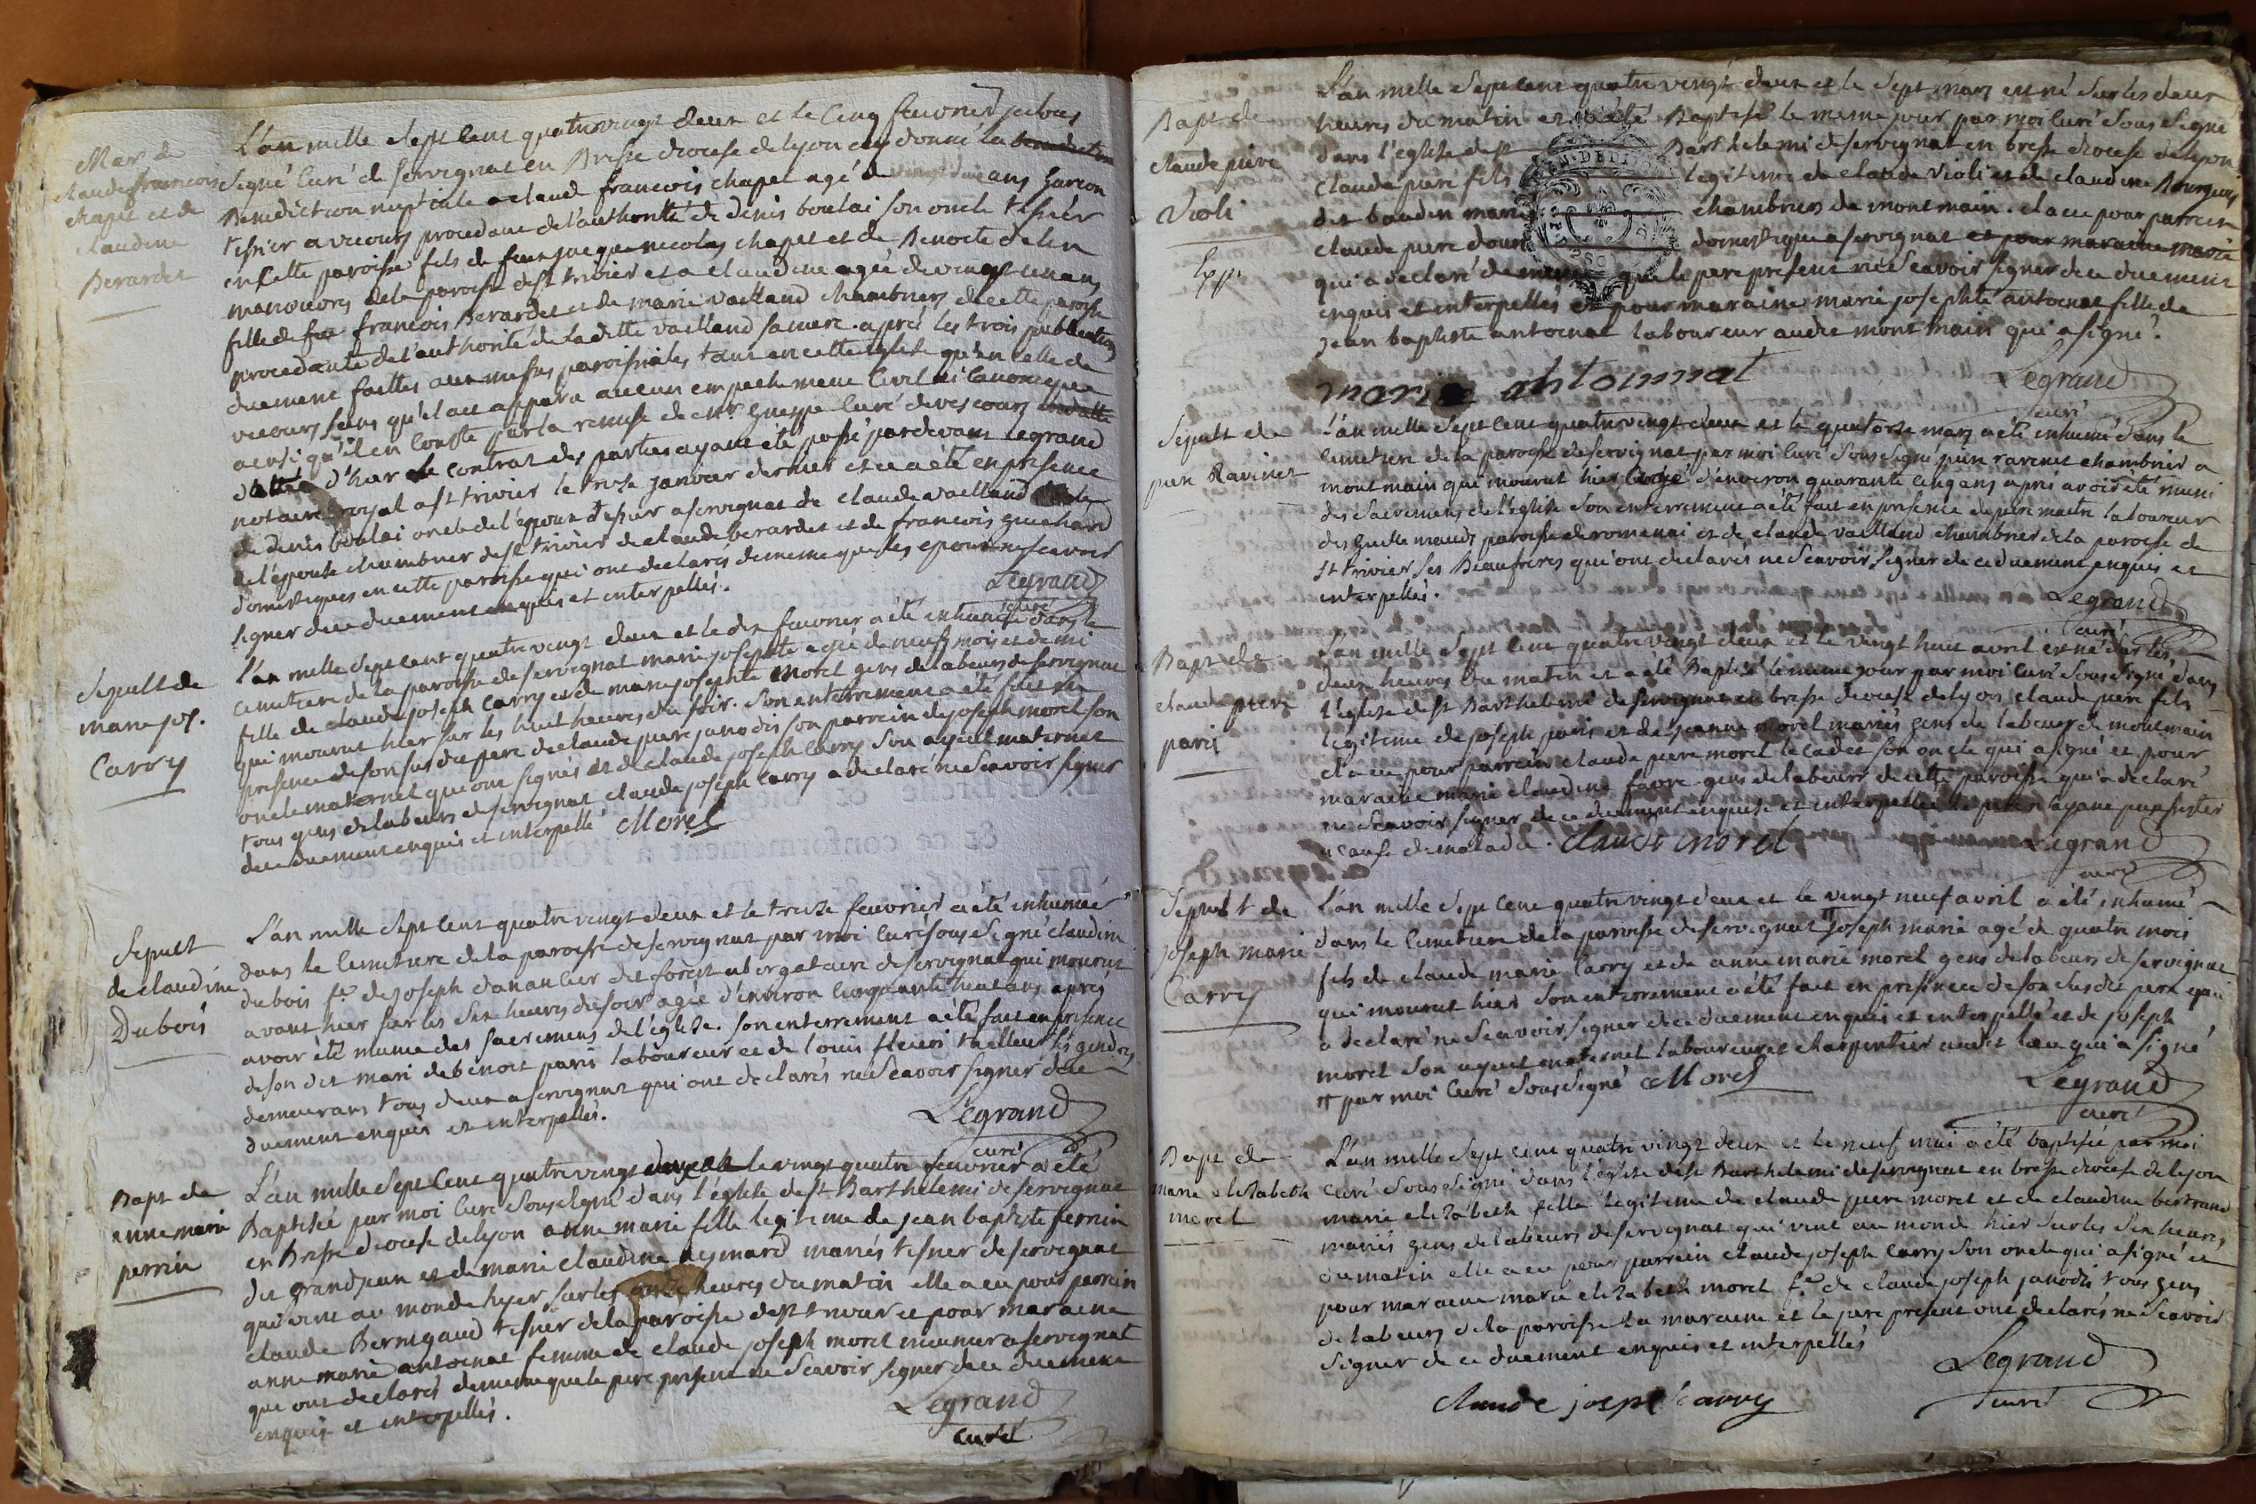 Mar de
claude francois
chapet et de
claudine
Berardet
L'an mille sept cent quatre vingt deux et le cinq fevrier je sous
signé curé de servignat en Bresse diocese de lyon ay donné la benediction
Benediction nuptiale a claude francois chapet agé de ans garcon
tissier a vecours procedant de l'authorité de denis boulai son oncle tissier
en cette paroisse fils de feux jacque nicolas chapet et de Benoite
manoeuvres de la paroisse de st trivier et a claudine agée de vingt un ans
fille de feu francois Berardet et de marie vailland chambriers de cette paroisse
procedante de l'authorité de la ditte vailland sa mere. après les trois publications
duement faittes aux messes paroissiales tant en cette eglise qu'en celle de
vecours sans qu'il ait apparu aucun empechement civil ni canonique
ainsi qu'il en conste par la remise de mr gueppe curé de vescours
d'hier le contrat des parties ayant été passé pardevant legrand
notaire royal a st trivier le treize janvier dernier et ce a été en presence
de denis boulai oncle de l'epoux tissier a servignat de claude vailland oncle
de l'epouse chambrier de st trivier de claude berardet et de francois guichard
domestiques en cette paroisse qui ont declarés de meme que les epoux ne scavoir
signer de ce duement enquis et interpellés.
Legrand
curé
Sepult de
marie jos.
Carry
L'an mille sept cent quatre vingt deux et le dix fevrier a été inhumée dans le
cimetiere de la paroisse de servignat marie josephte agée de neuf mois et demi
fille de claude joseph carry et de marie josephte morel gens de labeurs de servignat
qui mourut hier sur les huit heures du soir. son enterrement a été fait en
presence de son susdit pere de claude pierre janodis son parrein de joseph morel son
oncle maternel qui ont signés et de claude joseph carry son ayeul maternel
tous gens de labeurs de servignat claude joseph carry a declaré ne scavoir signer
de ce duement enquis et interpellé Morel
Sepult
de claudine
Dubois
L'an mille sept cent quatre vingt deux et le treize fevrier a été inhumée
dans le cimetiere de la paroisse de servignat par moi curé sous signé claudine
dubois fe. de joseph danancier dit forest abergataire de servignat qui mourut
avant hier sur les six heures du soir agée d'environ cinquante huit ans apres
avoir été munie des sacremens de l'eglise. son enterrement a été fait en presence
de son dit mari de benoit paris laboureur et de louis fleuri tailleur ses gendres
demeurans tous deux a servignat qui ont declarés ne scavoir signer de ce
duement enquis et interpellés.
Legrand
curé
Bapt de
anne marie
perrin
L'an mille sept cent quatre vingt deux et le vingt quatre fevrier a été
Baptisée par moi curé sous signé dans l'eglise de st Barthelemi de servignat
en Bresse diocese de lyon anne marie fille legitime de jean baptiste perrin
dit grandjean et de marie claudine reymard mariés tisner de servignat
qui vint au monde hyer sur les onze heures du matin elle a eu pour parrein
claude Bernigaud tisner de la paroisse de st trivier et pour maraine
anne marie antoinat femme de claude joseph morel meunier a servignat
qui ont declarés de meme que le pere present ne scavoir signer de ce duement
enquis et interpellés.
Legrand
curé
Bapt de
claude piere
Violi
L'an mille sept cent quatre vingt deux et le sept mars est né sur les deux
heures du matin et a été Baptisé le meme jour par moi curé sous signé
dans l'eglise de st Barthelemi de servignat en bresse diocese de lyon
claude piere fils legitime de claude Violi et de claudine Bourgeois
dit baudin mariés chambriers de montmain. il a eu pour parrein
claude piere domestique a servignat et pour maraine marie
qui a declaré de meme que le pere present ne scavoir signer de ce duement
enquis et interpellés et pour maraine marie josephte antoinat fille de
jean baptiste antoinat laboureur audit montmain qui a signé.
marie antoinnat
Legrand
curé
Sepult de
piere Ravinet
L'an mille sept cent quatre vingt deux et le quatorze mars a été inhumé dans le
cimetiere de la paroisse de servignat par moi curé sous signé piere ravinet chambrier a
montmain qui mourut hier agé d'environ quarante cinq ans apres avoir été muni
des sacremens de l'eglise son enterrement a été fait en presence de piere laboureur
des paroisse de romenai et de claude vailland chambrier de la paroisse de
st trivier ses Beaufreres qui ont declarés ne scavoir signer de ce duement enquis et
interpellés.
Legrand
curé
Bapt de
claude piere
paris
L'an mille sept cent quatre vingt deux et le vingt huit avril est né sur les
deux heures du matin et a été Baptisé le meme jour par moi curé sous signé dans
l'eglise de st Barthelemi de servignat en bresse diocese de lyon claude piere fils
legitime de joseph paris et de jeanne morel mariés gens de labeur de montmain
il a eu pour parrein claude piere morel le cadet son oncle qui a signé et pour
maraine marie claudine favre gens de labeurs de cette paroisse qui a declaré
ne scavoir signer de ce duement enquise et interpellée le pere n'ayant pu assister
a cause de maladie. Claude morel
Legrand
curé
Sepult de
joseph marie
Carry
L'an mille sept cent quatre vingt deux et le vingt neuf avril a été inhumé
dans le cimetiere de la paroisse de servignat joseph marie agé de quatre mois
fils de claude marie carry et de anne marie morel gens de labeurs de servignat
qui mourut hier son enterrement a été fait en presence de son susdit pere qui
a declaré ne scavoir signer de ce duement enquis et interpellé et de joseph
morel son ayeul maternel laboureur et charpentier audit lieu qui a signé
par moi curé sous signé Morel
Legrand
curé
Bapt de
marie elizabeth
morel
L'an mille sept cent quatre vingt deux et le neuf mai a été baptisée par moi
curé sous signé dans l'eglise de st Barthelemi de servignat en bresse diocese de lyon
marie elizabeth fille legitime de claude piere morel et de claudine bertrand
mariés gens de labeurs de servignat qui vint au monde hier sur les six heures
du matin elle a eu pour parrein claude joseph carry son oncle qui a signé et
pour maraine marie elizabeth morel fe. de claude joseph janodis tous gens
de labeurs de la paroisse la maraine et le pere present ont declarés ne scavoir
signer de ce duement enquis et interpellés
Legrand
curé
claude joseph carry